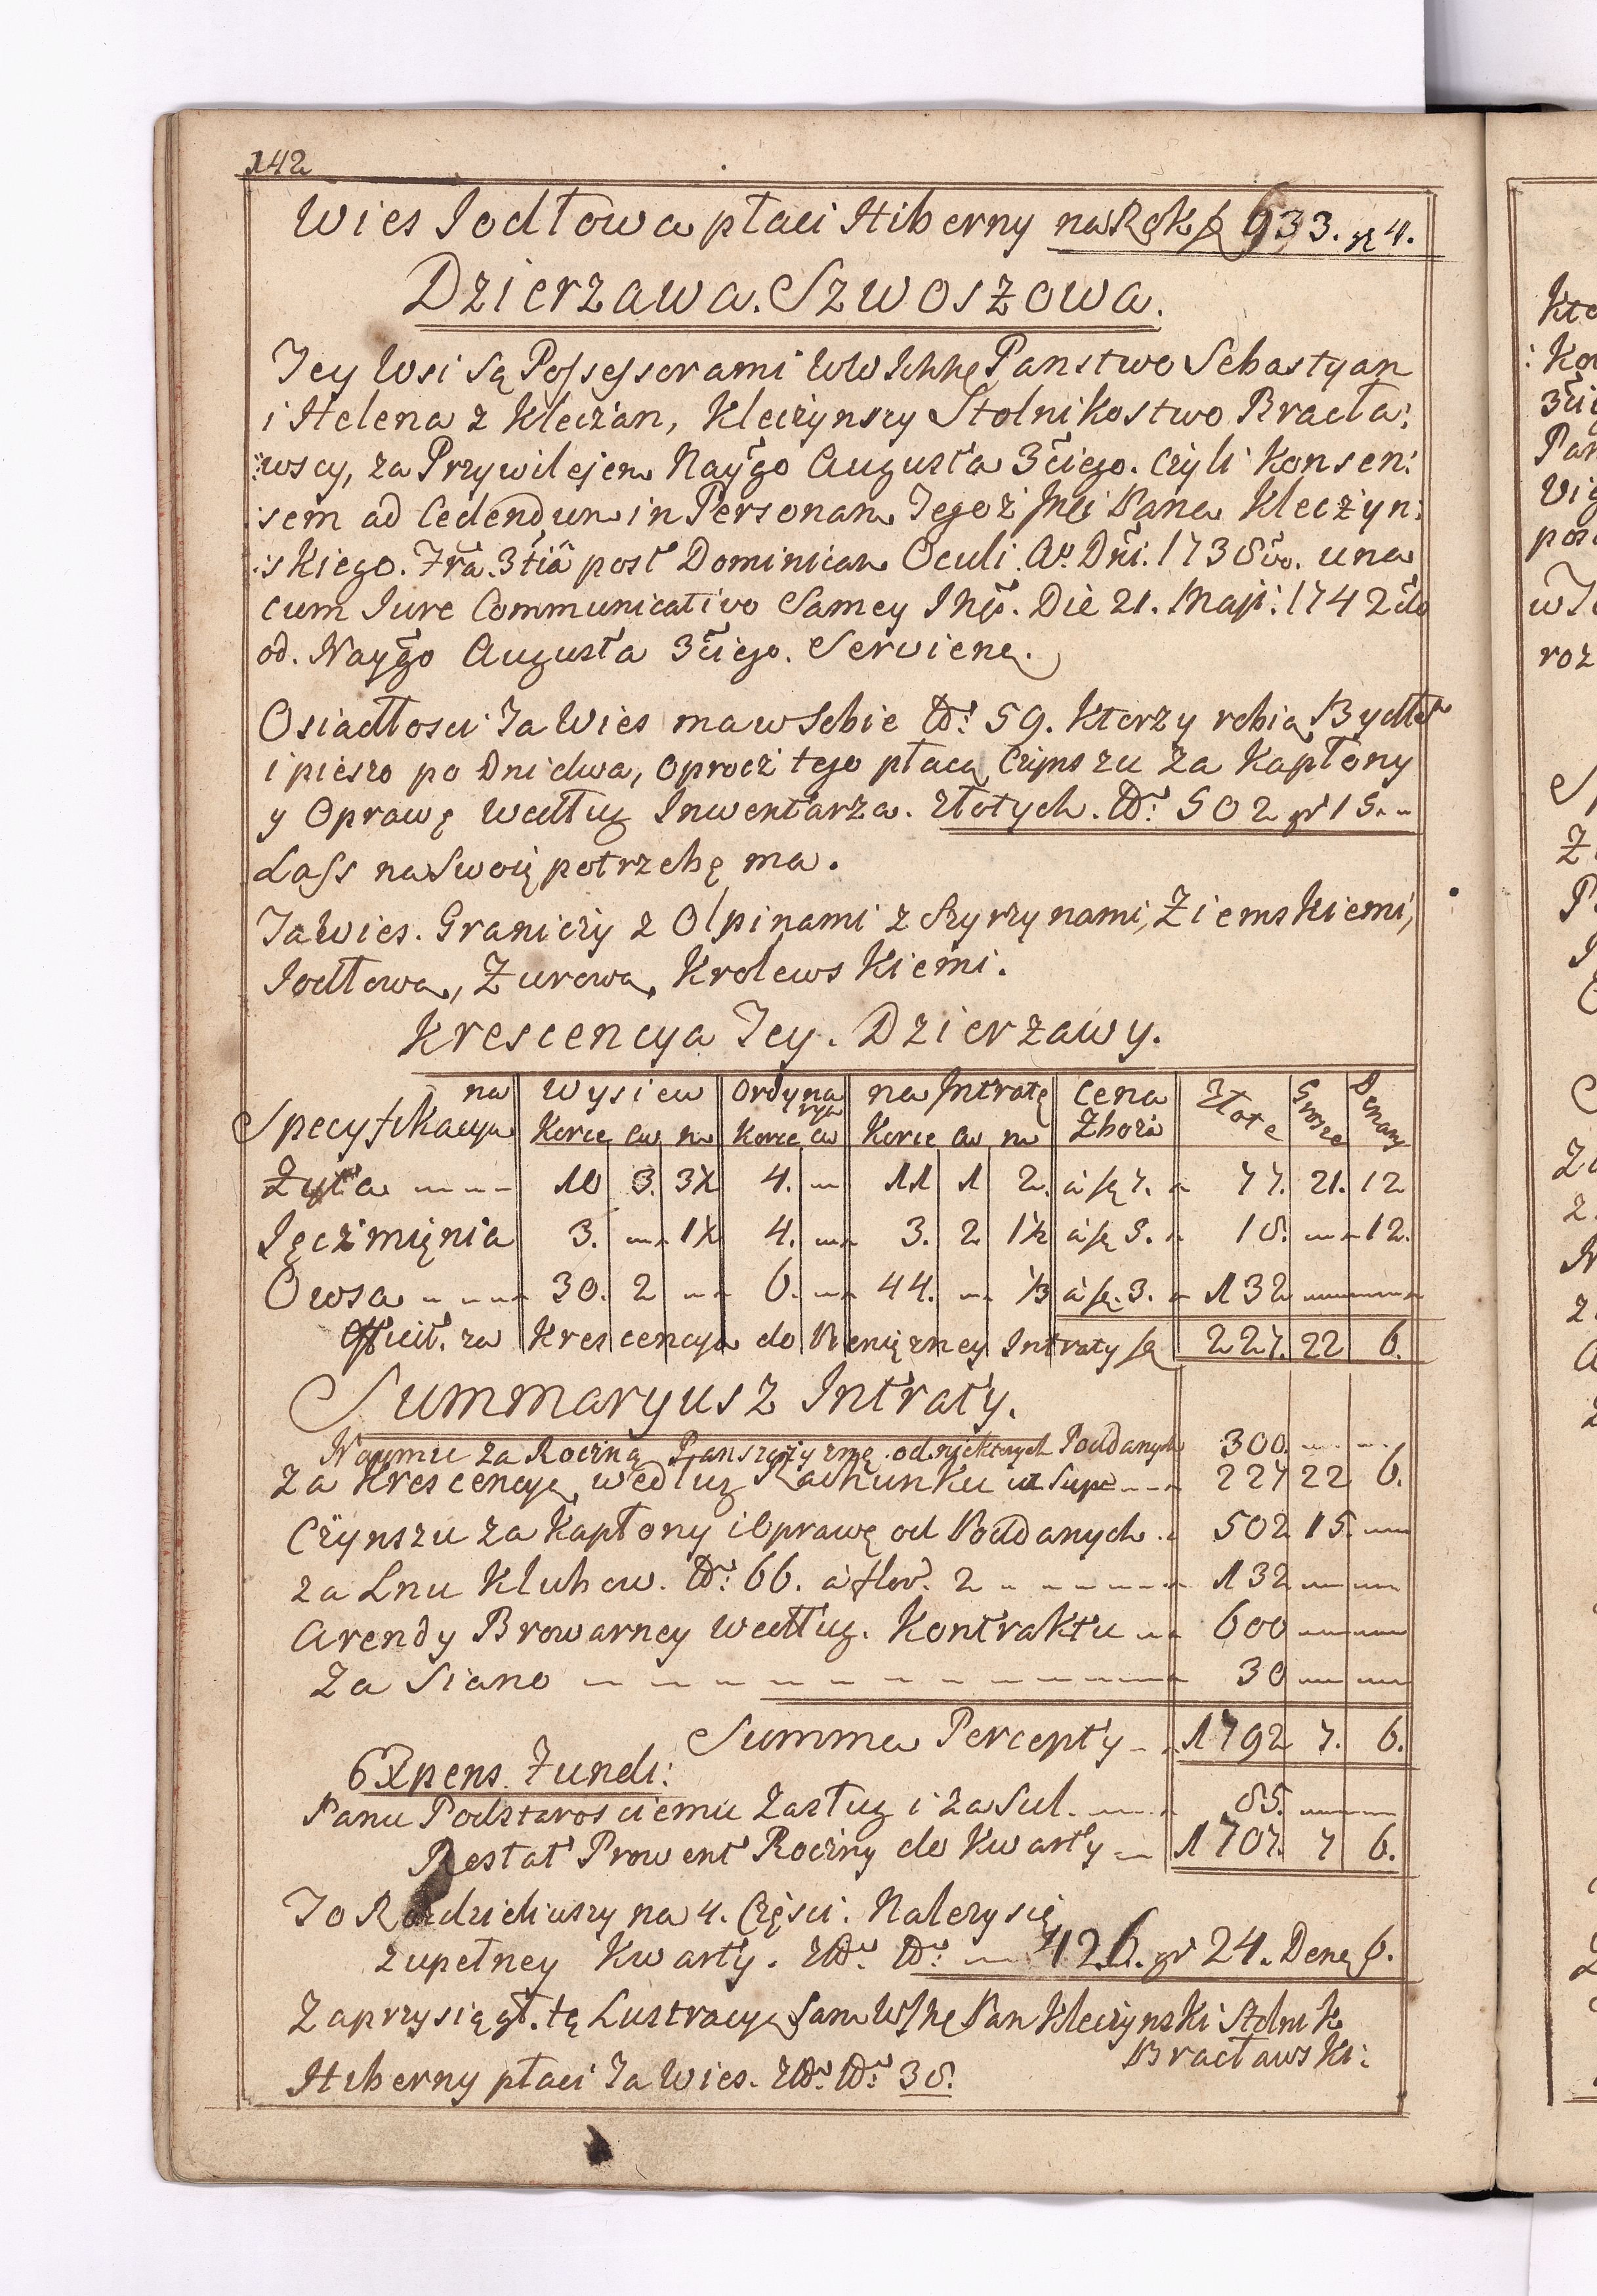 142
Wies Jodłowa płaci Hiberny na Rok f 933. gr 4.
Dzierzawa. Szwoszowa.
Tey Wsi są Possessorami WW Ichhę Panstwo Sebastyan
i Helena z Kleczan, Kleczynscy Stolnikostwo Bracła:
:wscy, za Przywilejem Nayğo Augusta 3ciego. czyli Konsen:
:sem ad Cedendum in Personam Tegoż Jmći Pana Kleczyn:
:skiego. Frã. 3tiâ post Dominicam Oculi. Aº Dñi. 1738vo. una
cum Jure Communicativo Samey Jmć. Die 21. Maji: 1742do
od. Nayğo Augusta 3ciego. Serviene.
Osiadłosci Ta Wies ma w Sobie No: 59. Ktorzy robią Bydłem
i pieszo po Dni dwa, oprocz tego płacą Czynszu za Kapłony
y Oprawę Według Inwentarza. Złotych. No: 502 gr 15.
Lass na Swoię potrzebę ma.
Ta Wies. Graniczy z Olpinami z Szyrzynami, Ziemskiemi,
Jodłowa, Zurowa, Krolewskiemi.
Krescencya Tey. Dzierzawy.
na Wysiew Ordynarya na Intratę Cena Złote Grosze Denary
Specyfikacya Korce Cw na Korce Cw Korce Cw na Zboża
Zyta 10 3. 3½ 4. 11 1 2. a fę 7. 77. 21. 12
Jęczmięnia 3. 1½ 4. 3. 2 1½ a fę 5. 18. 12.
Owsa 30. 2 6. 44. ⅓ a fę. 3. 132
Efficit. za Krescencya do Pienięzney Intraty fę 227. 22 6.
Summaryusz Intraty.
Naymu za Roczną Panszczyznę od niektorych Poddanych 300
Za Krescencyę według Rachunku ut Supr 227 22 6.
Czynszu za Kapłony i Oprawę od Poddanych 502 15.
za Lnu Klubow. No: 66. a flor. 2 132
Arendy Browarney Według. Kontraktu 600
Za Siano 30
Summa Percepty 1792 7. 6.
Expens. Fundi:
Panu Podstarosciemu Zasług i za Sul. 85.
Restat Prowent Roczny do Kwarty 1707. 7 6.
To Rozdzieliwszy na 4. Częsci. Nalezy się
zupełney Kwarty. Złł. No: 426. gr 24. Dena 6.
Zaprzysiągł. tę Lustracyę Sam WJhę Pan Kleczynski Stolnik
Bracławski:
Hiberny płaci Ta Wies. Złł. No: 38.